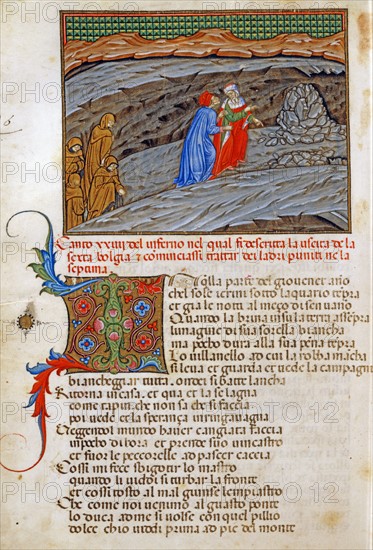 Canto xxiiij del inferno nel qual si descriva la uscita de la
sexta bolgia & cominciassi trattar dei ladri puniti ne la
septima
In quella parte del giovener anno
che l sole i crini sotto laquario tempra
et gia le notti al mezo di sen vano
Quando la brina in su la terra assempra
lumagine di sua sorella biancha
ma pocho dura alla sua pena tempra
Lo villanello ad cui la robba mancha
si leva et guarda et vede la campagna
biancheggiar tutta. ondei si batte lancha
Ritorna in casa. et qua et la se lagna
come l tapin che non sa che si faccia
poi riede et la sperança
Veggendol mondo haver cangiata faccia
in pocho di hora et prende suo vincastro
et fuor le peccorelle ad pascer caccia
Cossi mi fece sbigotir lo mastro
quando li vidi si turbar la fronte
et cossi tosto al mal giunse lempiastro
Che come noi venimo al guasto ponte
lo duca ad me si volse con quel piglio
dolce chio vidi prima ad pie del monte
PHOTO12